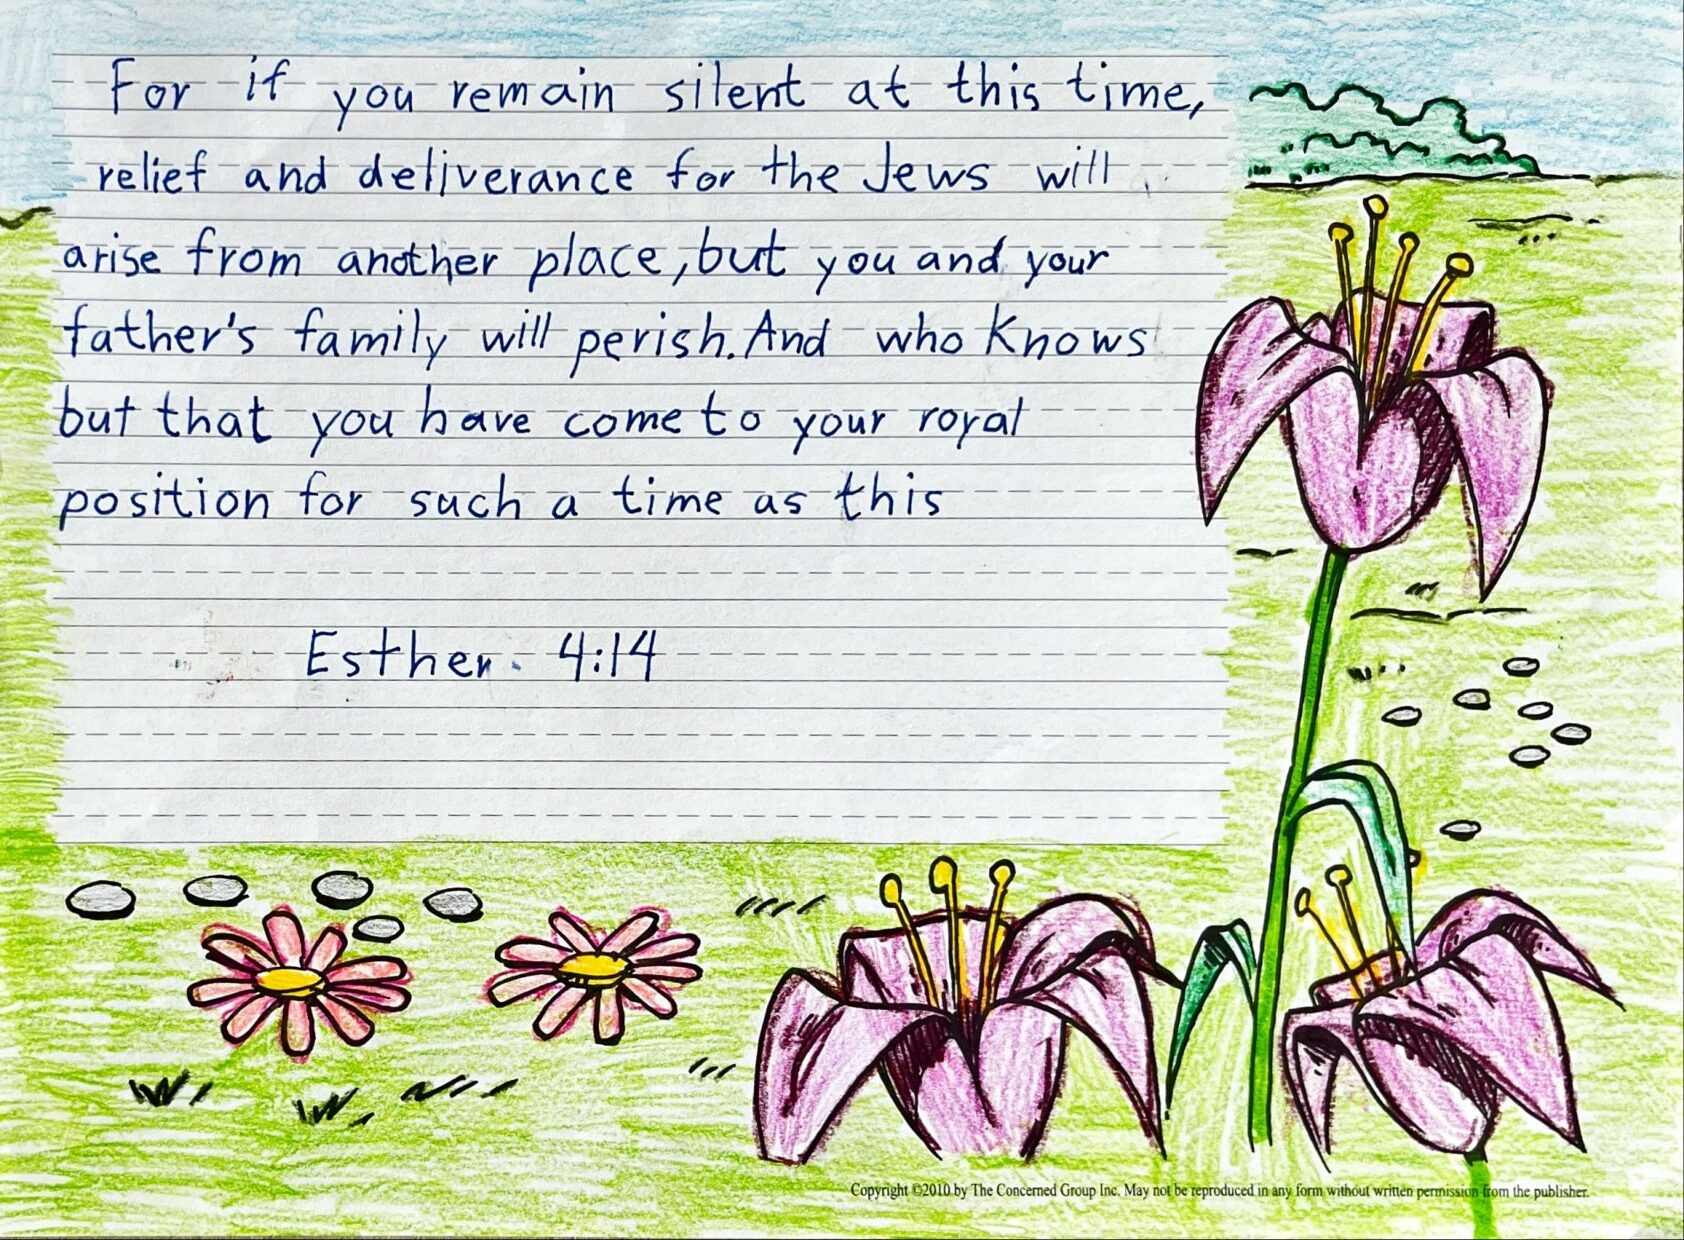 For if you remain silent at this time,
relief and deliverance for the Jews will
arise from another place, but you and your
father's family will perish. And who knows
but that you have come to your royal
position for such a time as this
Esther. 4:14
Copyright ©2010 by The Concerned Group Inc. May not be reproduced in any form without written permission from the publisher.